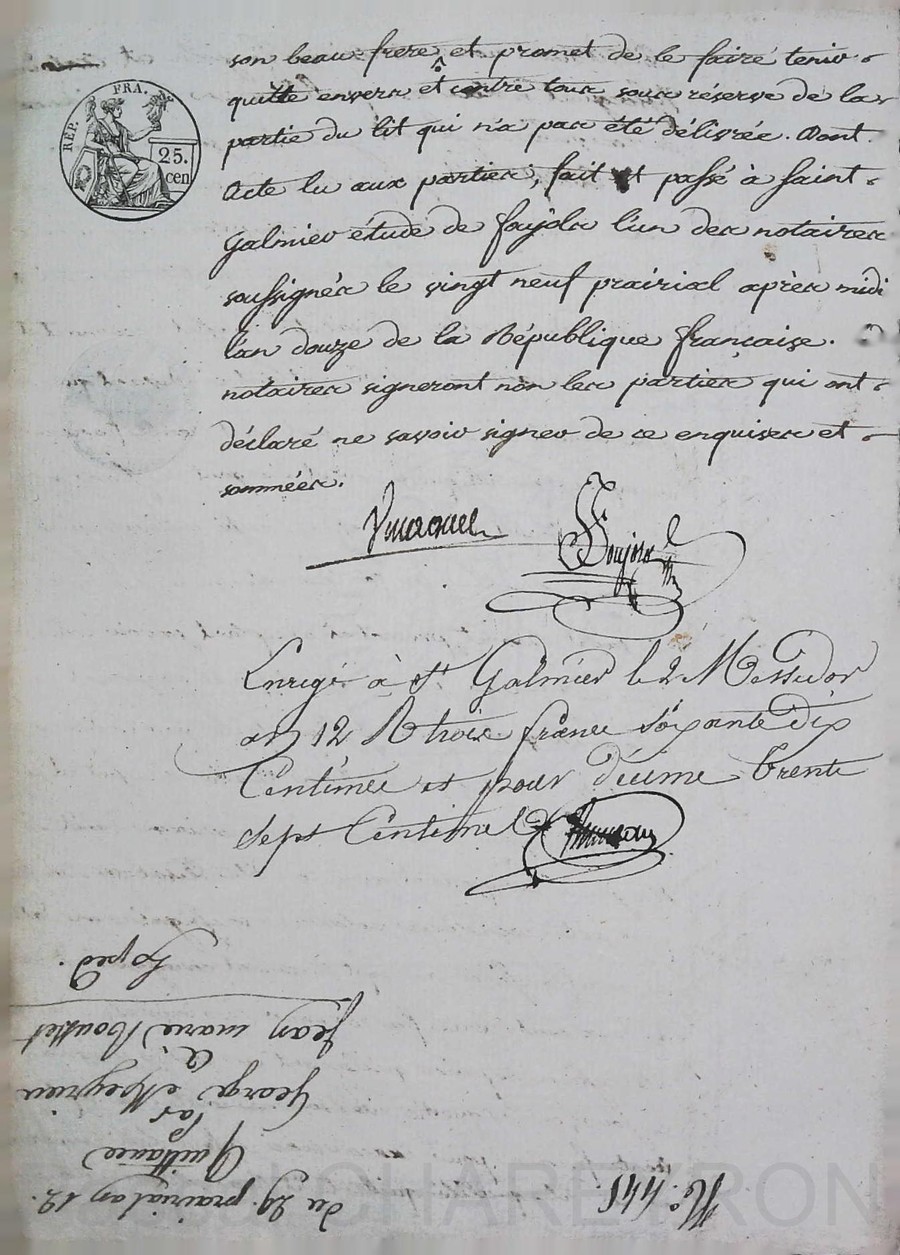 REP. FRA.
25.
cen
son beau frere, et promet de le faire tenir
quitte envers et contre tous sous réserve de la
partie du lit qui n'a pas été délivrée. Dont
Acte lu aux parties, fait et passé à Saint
Galmier étude de Foujols l'un des notaires
soussignés le vingt neuf prairial après midi
l'an douze de la République française.
notaires signeront non les parties qui ont
déclaré ne savoir signer de ce enquises et
sommées.
Foujols
Enregé à St Galmier le 2 Messidor
an 12 R trois francs soixante dix
Centimes et pour décime trente
sept Centimes
No. 445
du 29. prairial an 12.
Quittance
par
George Meyrieu
à
Jean marie Bouthet
Exped.
CHAREYRON